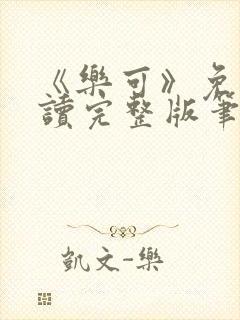 《樂可》免
讀完整版筆
凱文-樂